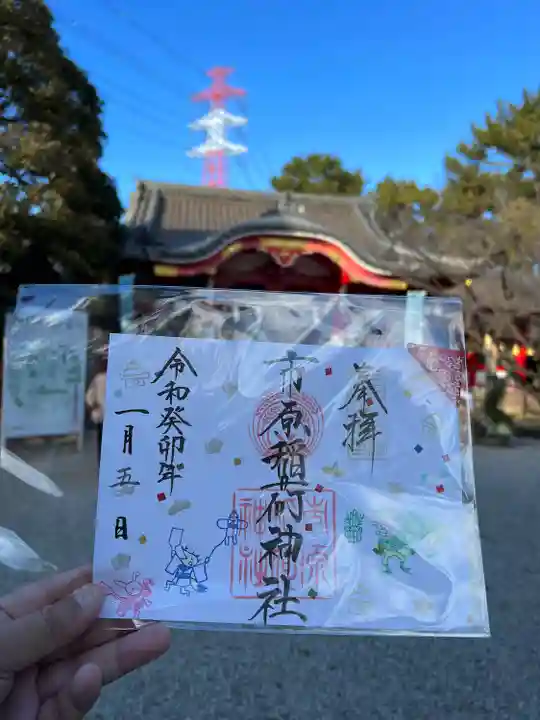 奉拝
市原稲荷神社
令和癸卯年
一月五日